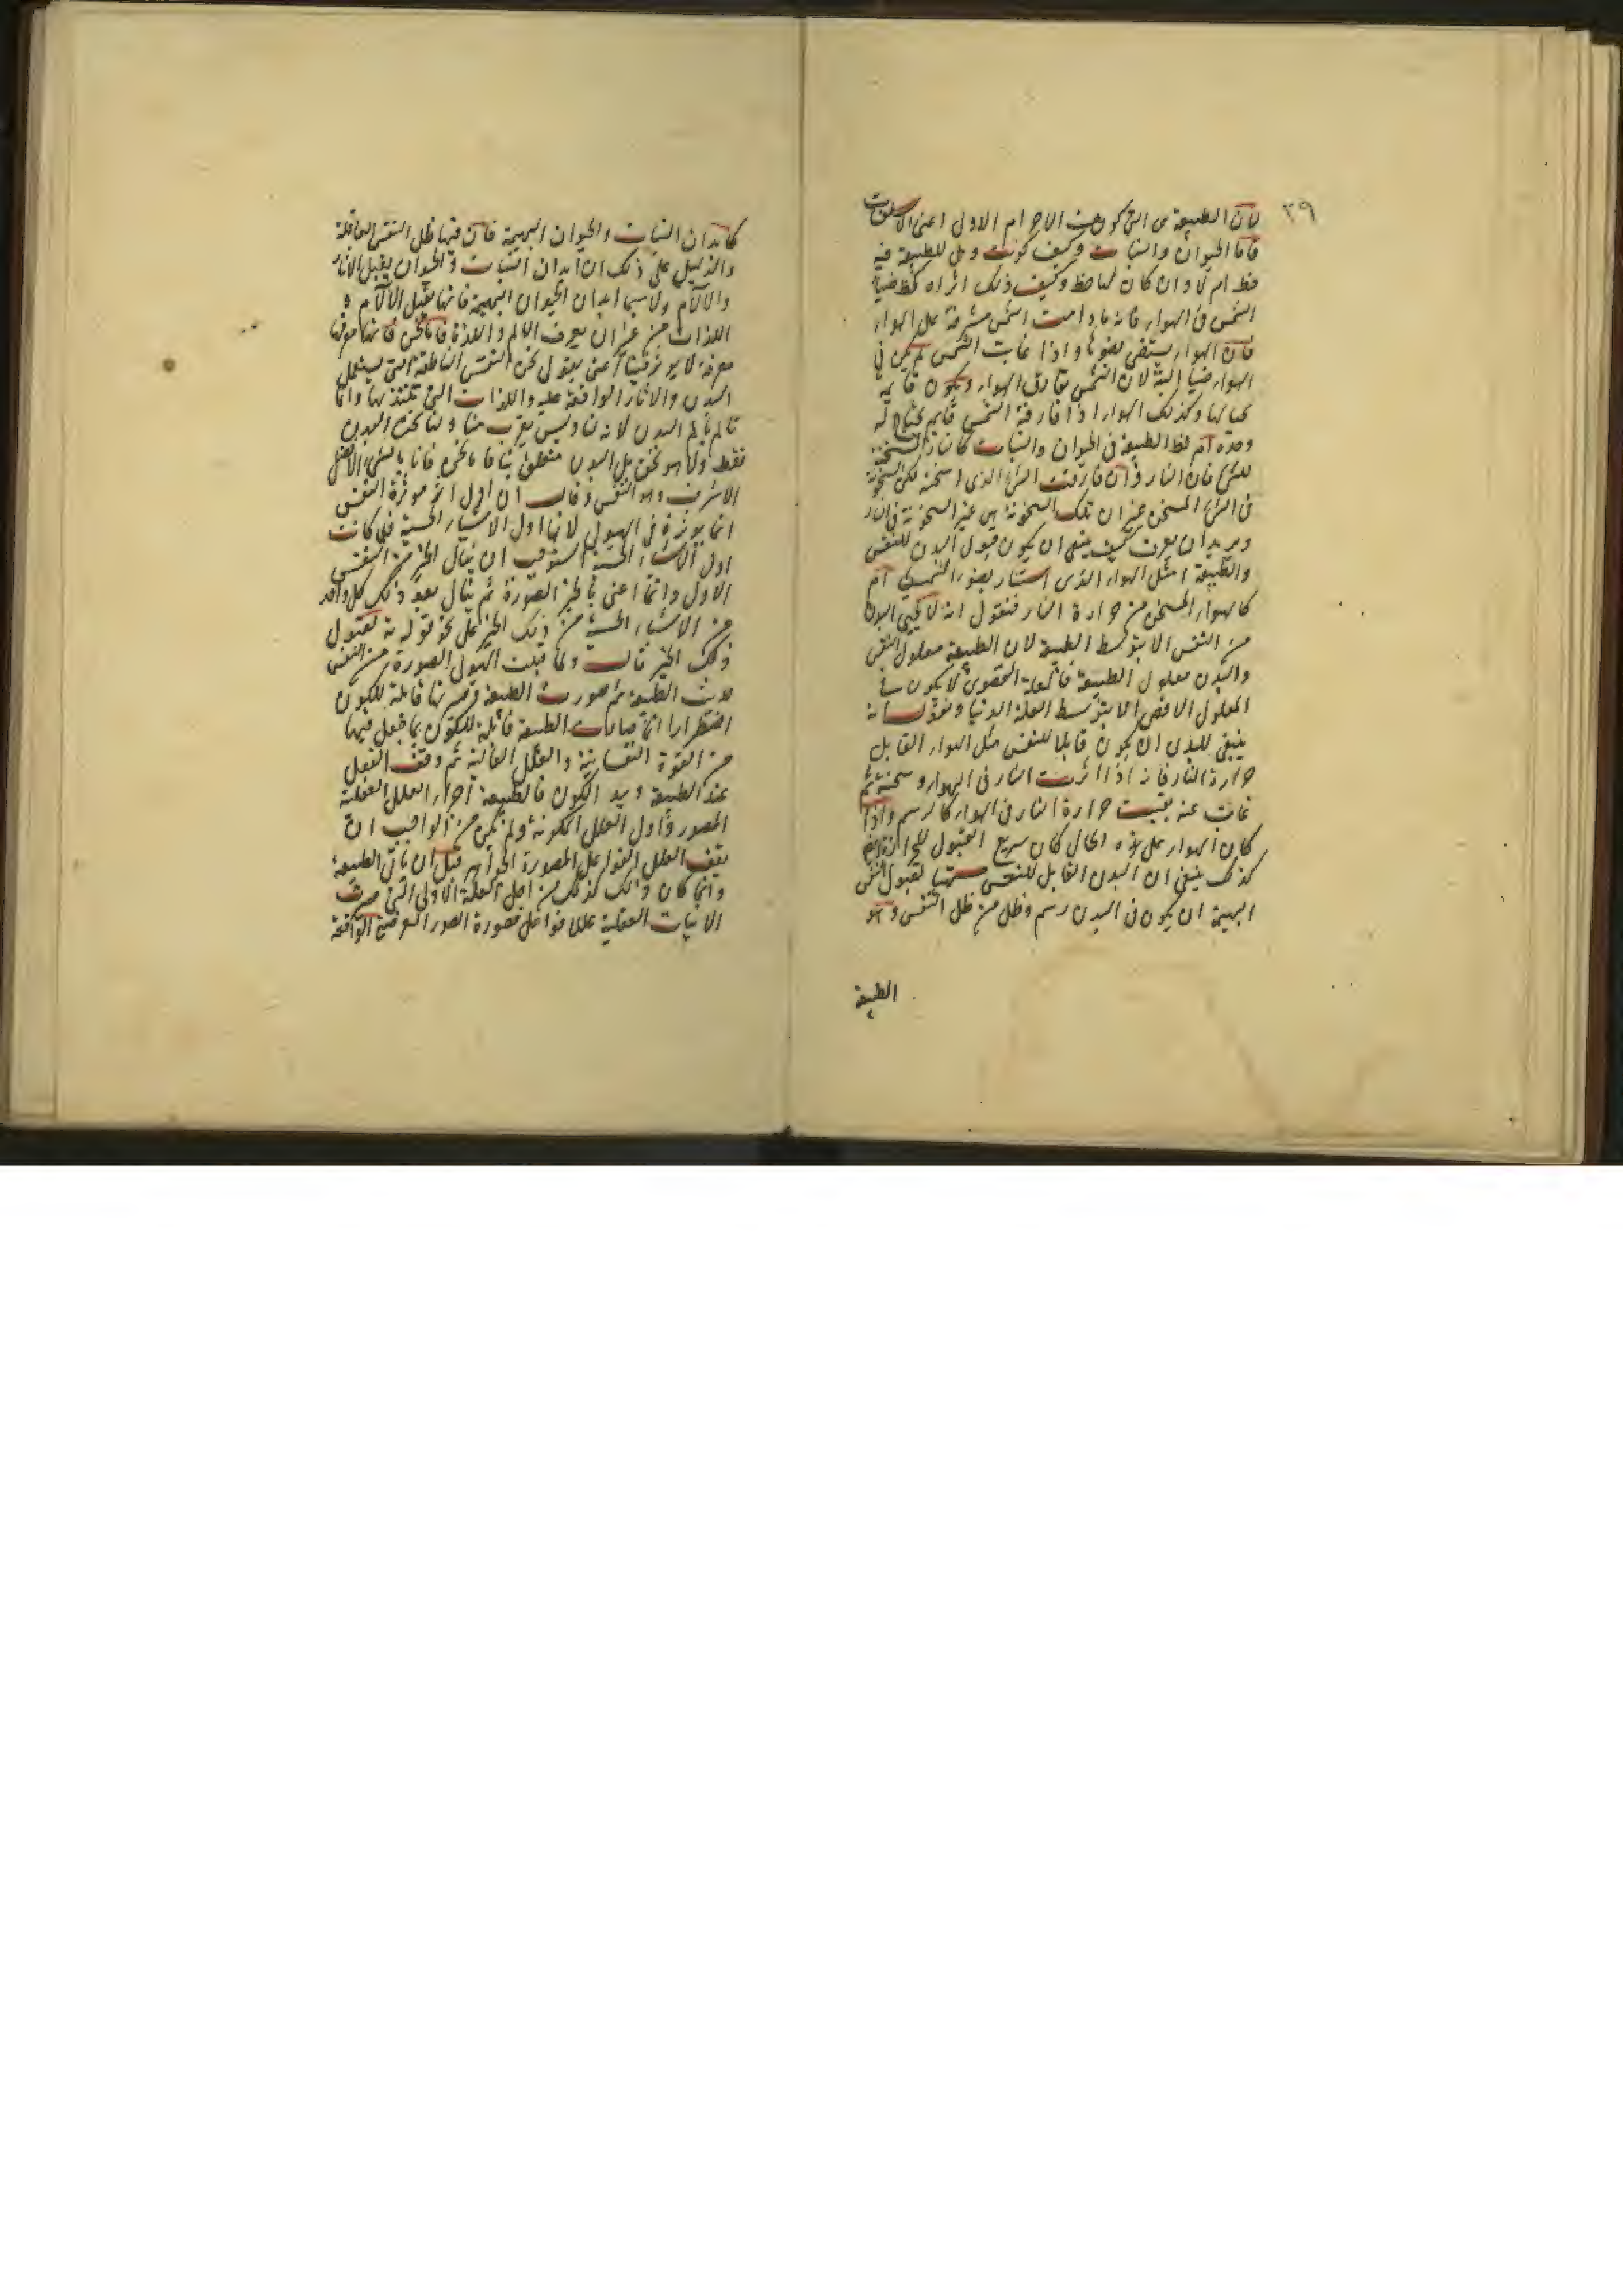 ٣٩
لان الطبيعة هى التى كونت الاجرام الاول اعنى
فاما الحيوان والنبات وكيف كونت وهل للطبيعة فيه
حظ ام لا وان كان لها حظ وكيف ذلك اتراه كحظ ضياء
الشمس فى الهواء فانه ما دامت الشمس مشرقة على الهواء
فان الهواء يستضى بضوئها واذا غابت الشمس لم يكن فى
الهواء ضياء البتة لان الشمس تفارق الهواء ويكون قايمة
بحيالها وكذلك الهواء اذا فارقه الشمس قايم
وحده ام حظ الطبيعة فى الحيوان والنبات كالنار المسخنة
للشئ فان النار وان فارقت الشئ الذى اسخنته لكن السخونة
فى الشئ المسخن غير ان تلك السخونة هى غير السخونة فى النار
ونريد ان نعرف كيف ينبغى ان يكون قبول البدن للنفس
والطبيعة امثل الهواء الذى استنار بضوء الشمس ام
كالهواء المسخن من حرارة النار فنقول انه لا يحيى البدن
من النفس الا بتوسط الطبيعة لان الطبيعة معلول النفس
والبدن معلول الطبيعة فالعلة القصوى لا يكون
المعلول الاقصى الا بتوسط العلة الدنيا ونقول انه
ينبغى للبدن ان يكون قابلا للنفس مثل الهواء القابل
حرارة النار فانه اذا اثرت النار فى الهواء وسخنته ثم
غابت عنه بقيت حرارة النار فى الهواء كالرسم واذا
كان الهواء على هذه الحال كان سريع القبول للحرارة
كذلك ينبغى ان البدن القابل للنفس متهيا لقبول النفس
البهيمة ان يكون فى البدن رسم وظل من ظل النفس وهو
الطبيعة
كابدان النبات والحيوان البهيمة فان فيها ظل النفس العاقلة
والدليل على ذلك ان ابدان النبات والحيوان يقبل الاثار
والالام ولا سيما ابدان الحيوان البهيمة فانها تقبل الالام و
اللذات من غير ان يعرف الالم واللذة فاما نحن فانها
معرفة لا يوثر فينا اعنى بقول نحن النفس الناطقة التى يستعمل
البدن والاثار الواقعة عليه واللذات التى تلتذ بها وانما
تالم بالم البدن لانه لنا وليس بغريب منا ولسنا نحن البدن
فقط ولا هو نحن بل البدن متعلق بنا فاما نحن فانا بالشئ الافضل
الاشرف وهو النفس وقال ان اول اثر موثرة النفس
انما يوثره فى الهيولى لانها اول الاشياء الحسية فلما كانت
اول الاشياء الحسية استوجب ان ينال الخير من النفس
الاول وانما اعنى بالخير الصورة ثم ينال بعد ذلك كل واحد
من الاشياء الحسية من ذلك الخير على نحو قوته لقبول
ذلك الخير قال ولما قبلت الهيولى الصورة من النفس
حدثت الطبيعة ثم صورت الطبيعة وصيرتها قابلة للكون
اضطرارا انما صارت الطبيعة قابلة للكون بما جعل فيها
من القوة النفسانية والعلل العالية ثم وقف الفعل
عند الطبيعة وبدو الكون فالطبيعة آخر العلل العقلية
المصورة واول العلل المكونة ولم يكن من الواجب ان
يقف العلل الفواعل المصورة الجواهر قبل ان ياتى الطبيعة
وانما كان ذلك كذلك من اجل العلة الاولى التى صيرت
الانيات العقلية عللا فواعل مصورة الصور العرضية الواقعة